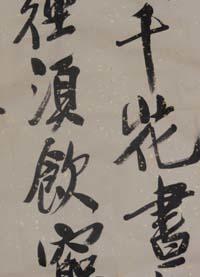 千花晝
徑須飲窮